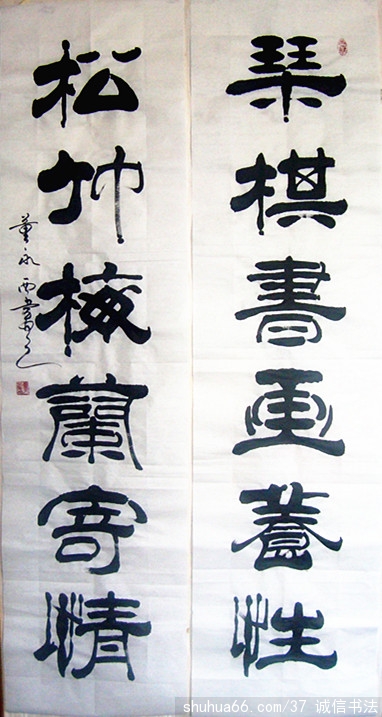 琹棋書畫養性
松竹梅蘭寄情
董永
shuhua66.com/37 诚信书法